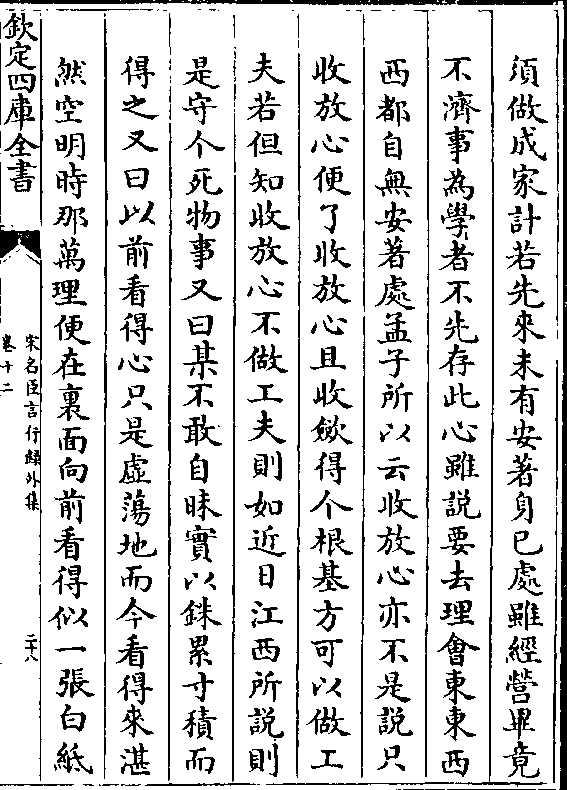 須做成家計若先來未有安著身已處雖經營畢竟
不濟事為學者不先存此心雖説要去理會東東西
西都自無安著處孟子所以云收放心亦不是説只
收放心便了收放心且收斂得个根基方可以做工
夫若但知收放心不做工夫則如近日江西所説則
是守个死物事又曰某不敢自昧實以銖累寸積而
得之又曰以前看得心只是虛蕩地而今看得來湛
然空明時那萬理便在裏面向前看得似一張白紙
欽定四庫全書
宋名臣言行録外集
卷十二
二十八